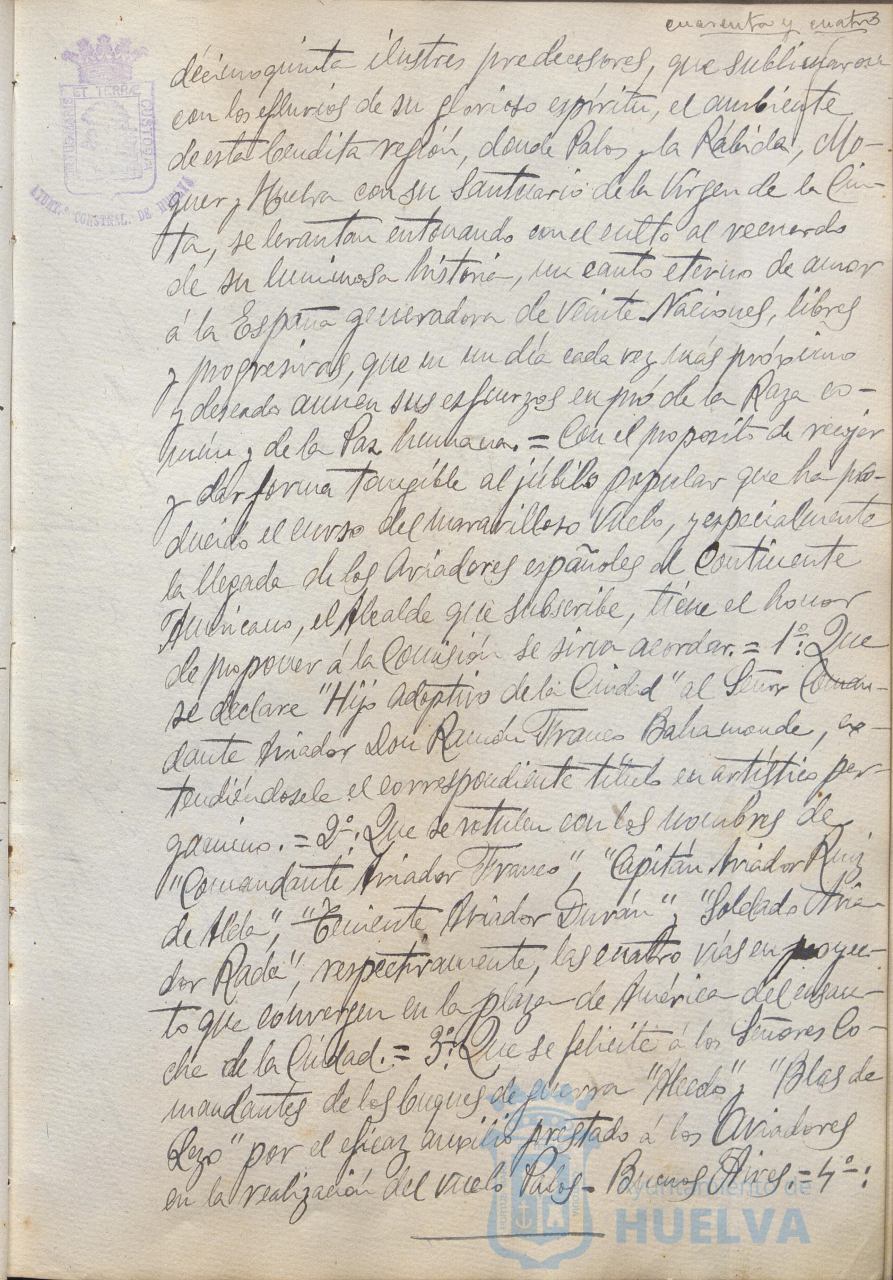 cuarenta y cuatro
décimoquinta ilustres predecesores, que sublimaron
con los efluvios de su glorioso espíritu, el ambiente
de esta bendita región, donde Palos y la Rábida, Mo-
guer y Huelva con su Santuario de la Virgen de la Cin-
ta, se levantan entonando con el culto al recuerdo
de su luminosa historia, un canto eterno de amor
á la España generadora de veinte Naciones, libres
y progresivas, que en un día cada vez más próximo
y deseado aunen sus esfuerzos en pró de la Raza co-
mún y de la Paz humana. = Con el proposito de recojer
y dar forma tangible al júbilo popular que ha pro-
ducido el curso del maravilloso vuelo, y especialmente
la llegada de los Aviadores españoles al Continente
Americano, el Alcalde que subscribe, tiene el honor
de proponer á la Comisión se sirva acordar. = 1º: Que
se declare "Hijo adoptivo de la Ciudad" al Señor Coman-
dante Aviador Don Ramón Franco Bahamonde, ex-
tendiéndosele el correspondiente título en artístico per-
gamino. = 2º: Que se rotulen con los nombres de
"Comandante Aviador Franco", "Capitán Aviador Ruiz
de Alda", "Teniente Aviador Durán" y "Soldado Avia-
dor Rada", respectivamente, las cuatro vías en proyec-
to que convergen en la plaza de América del ensan-
che de la Ciudad. = 3º: Que se felicite á los Señores Co-
mandantes de los buques de guerra "Alsedo" y "Blas de
Lezo" por el eficaz auxilio prestado á los Aviadores
en la realización del vuelo Palos - Buenos Aires. = 4º:
ET TERRÆ
CUSTODIA
AYUNT.º CONSTNAL. DE HUELVA
Ayuntamiento de
HUELVA